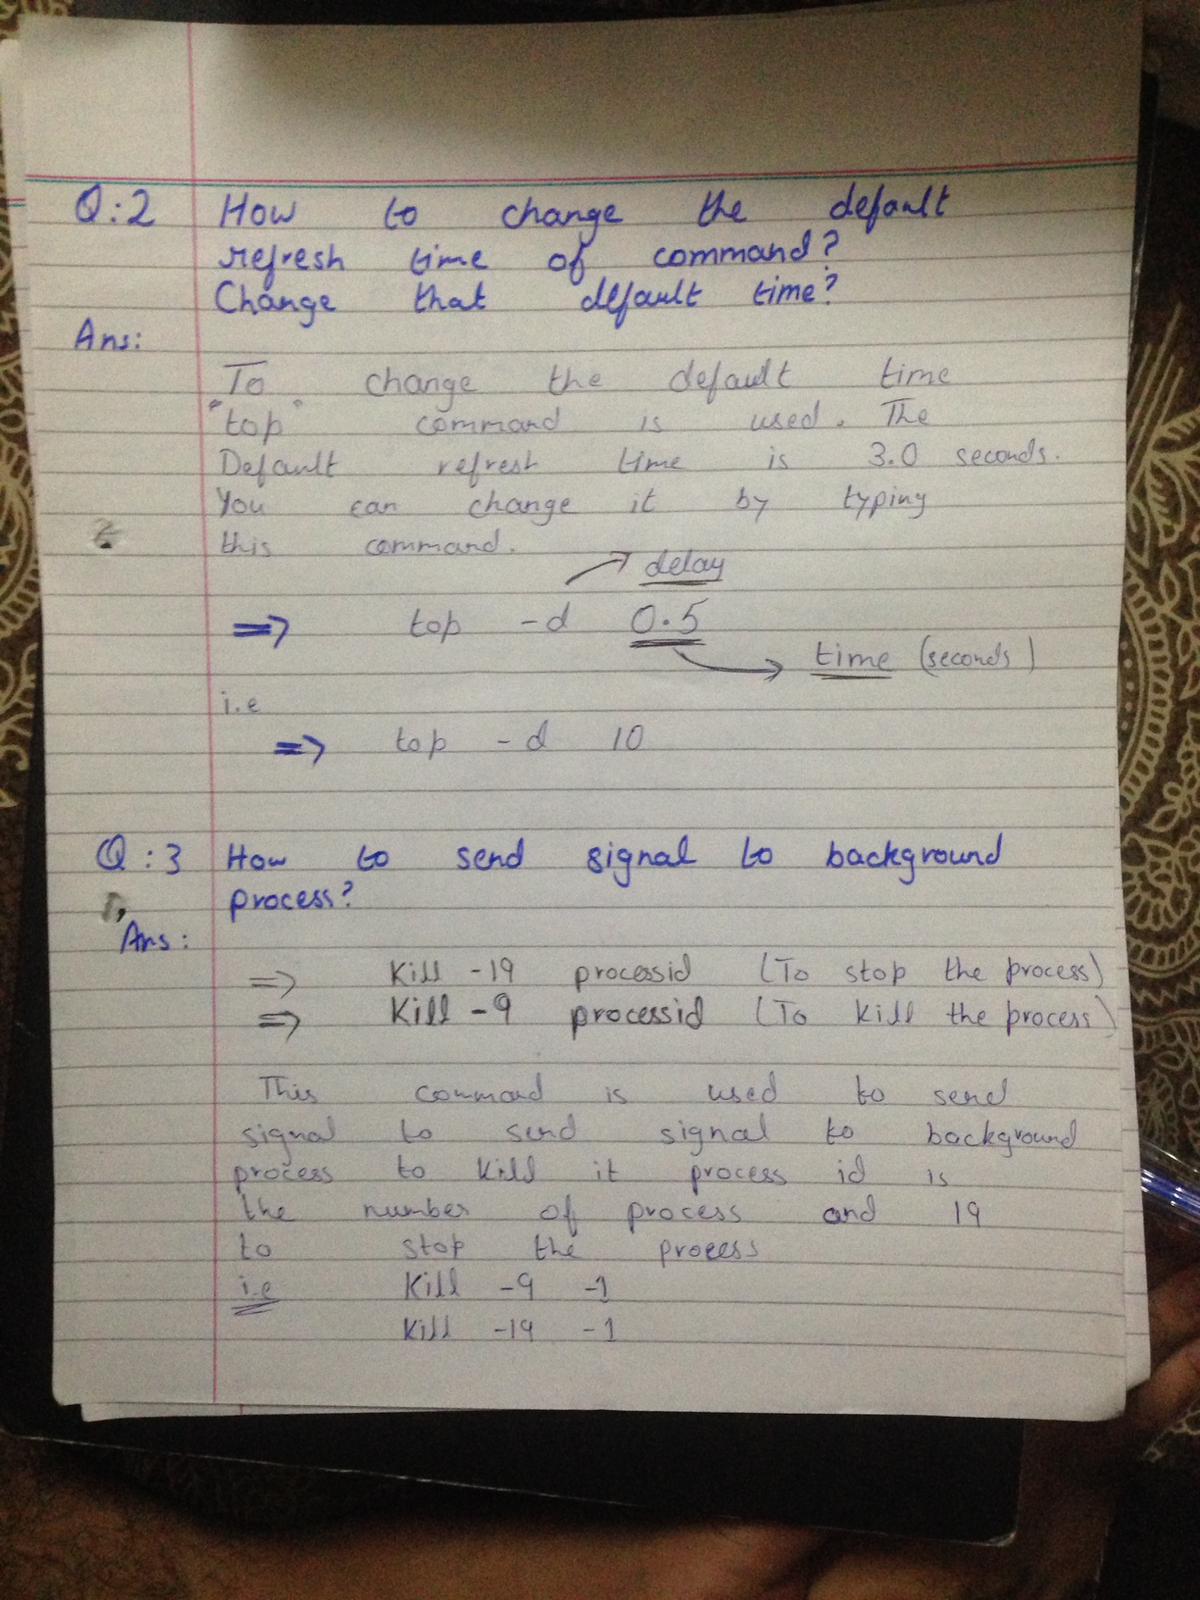 Q:2 How to change the default
refresh time of command?
Change that default time?
Ans:
To change the default time
"top" command is used. The
Default refresh time is 3.0 seconds.
You can change it by typing
this command.
delay
=> top -d 0.5
time (seconds)
i.e
=> top -d 10
Q:3 How to send signal to background
process?
Ans:
=> Kill -19 processid (To stop the process)
=> Kill -9 processid (To Kill the process)
This command is used to send
signal to send signal to background
process to kill it process id is
the number of process and 19
to stop the process
i.e Kill -9 -1
Kill -19 -1